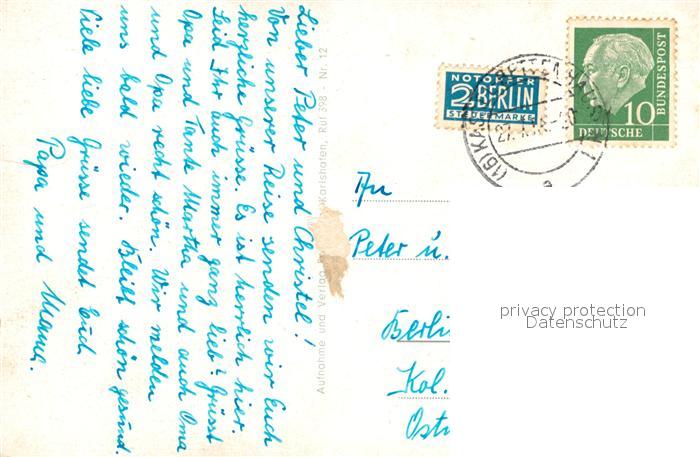 Lieber Peter und Christel!
Von unserer Reise senden wir Euch
herzliche Grüsse. Es ist herrlich hier.
Seid Ihr auch immer ganz lieb? Grüsst
Opa und Tante Martha und auch Oma
und Opa recht schön. Wir melden
uns bald wieder. Bleibt schön gesund.
Viele liebe Grüsse sendet Euch
Papa und Mama.
Aufnahme und Verlag Karlshafen, Ruf 598 - Nr. 12
NOTOPFER
2 BERLIN
STEUERMARKE
DEUTSCHE
BUNDESPOST
10
(16) KASSEL
An
Peter u.
Berlin
Kol.
privacy protection
Datenschutz